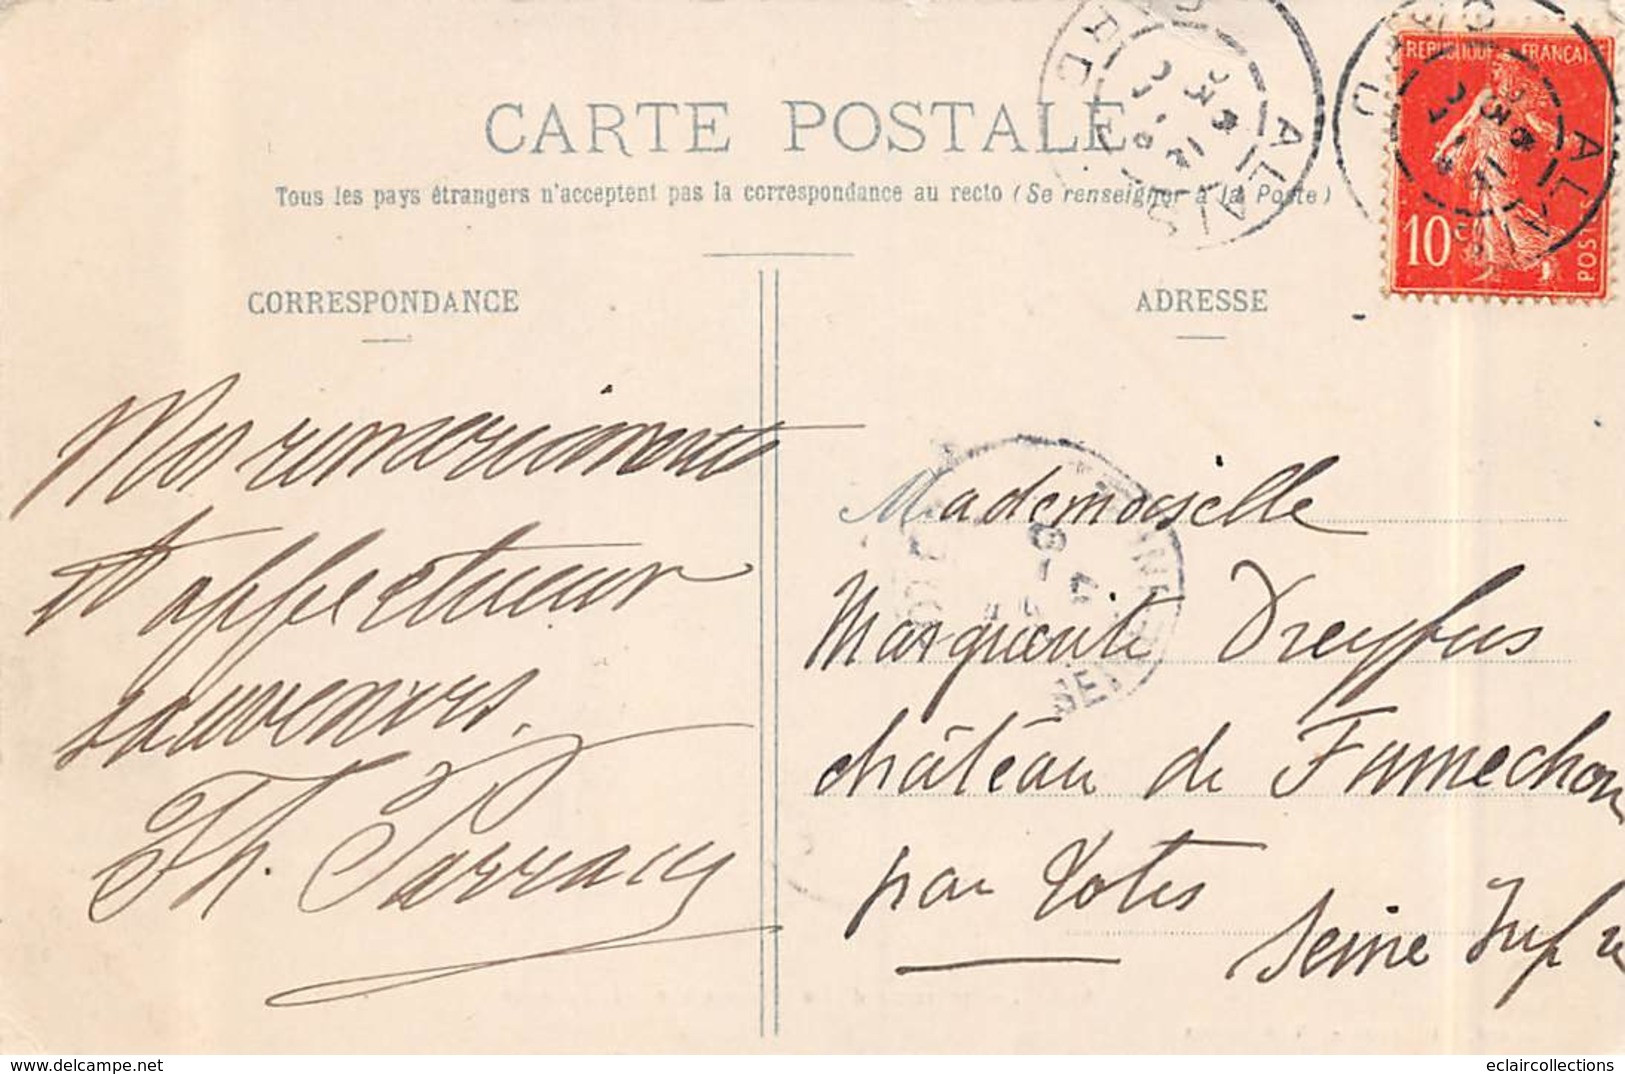 CARTE POSTALE
Tous les pays étrangers n'acceptent pas la correspondance au recto (Se renseigner à la Poste)
REPUBLIQUE FRANÇAISE
10c POSTES
ALAIS
GARD
CORRESPONDANCE
ADRESSE
Mes remerciements
et affectueux
souvenirs.
Th.
Mademoiselle
Marguerite Dreyfus
château de Fumechon
par Totes
Seine Infre
eclaircollections